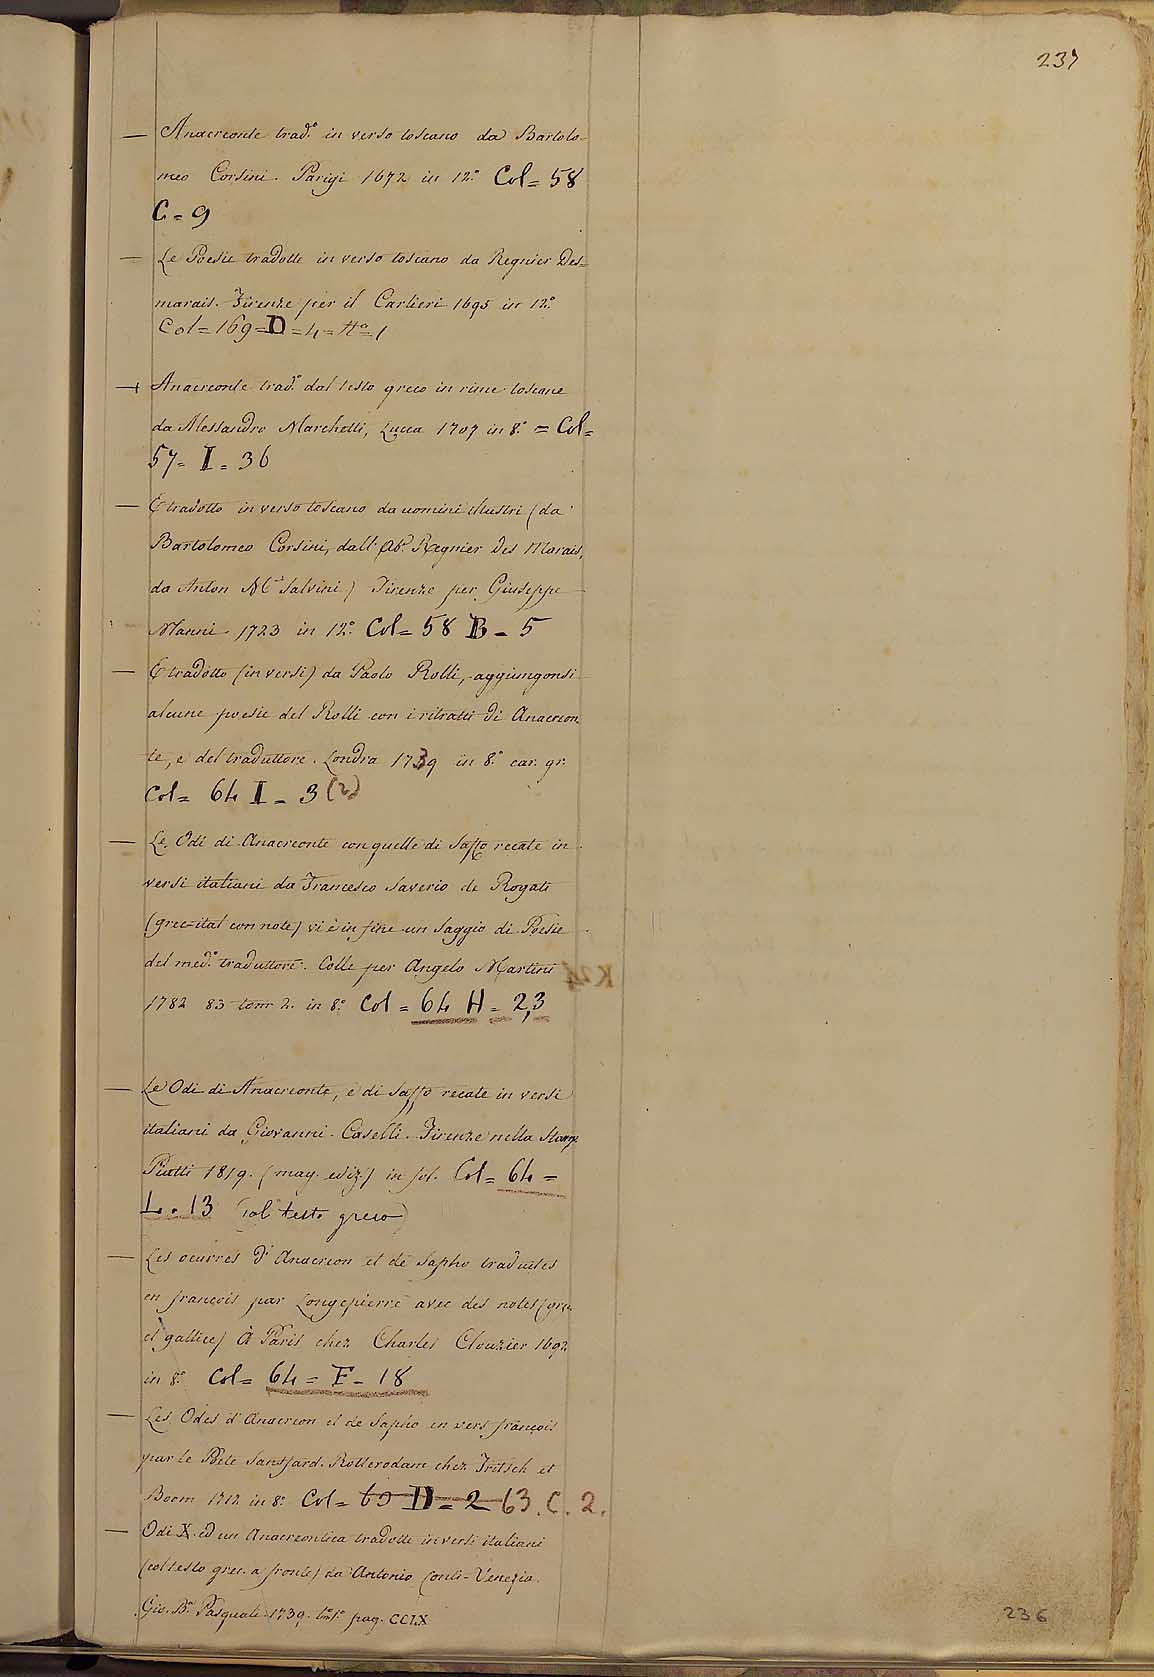 237
— Anacreonte trad.º in verso toscano da Bartolo-
meo Corsini. Parigi 1672 in 12.º Col = 58
C = 9
— Le Poesie tradotte in verso toscano da Regnier Des=
marais. Firenze per il Carlieri 1695 in 12.º
Col = 169 = D = 4 = N.º 1
— Anacreonte trad.º dal testo greco in rime toscane
da Alessandro Marchetti, Lucca 1707 in 8.º = Col =
57 = I = 36
— E tradotto in verso toscano da uomini illustri (da
Bartolomeo Corsini, dall' Ab.e Regnier des Marais,
da Anton M.a Salvini) Firenze per Giuseppe
Manni 1723 in 12.º Col = 58 B = 5
— E tradotto (in versi) da Paolo Rolli, aggiungonsi
alcune poesie del Rolli con i ritratti di Anacreon
te, e del traduttore. Londra 1739 in 8.º car. gr.
Col = 64 I = 3 (2)
— Le Odi di Anacreonte con quelle di Saffo recate in
versi italiani da Francesco Saverio de Rogati
(grec-ital con note) vi è in fine un Saggio di Poesie
del med.º traduttore. Colle per Angelo Martini
1782 83 tom 2. in 8.º Col = 64 H = 2,3
— Le Odi di Anacreonte, e di Saffo recate in versi
italiani da Giovanni Caselli. Firenze nella Stamp
Piatti 1819. (mag. ediz.) in fol. Col = 64 =
L. 13 (col testo greco)
— Les oeuvres d'Anacreon et de Sapho traduites
en françois par Longepierre avec des notes (grec
et gallice) A Paris chez Charles Clouzier 1692
in 8.º Col = 64 = F = 18
— Les Odes d'Anacreon et de Sapho en vers françois
par le Poete Sansfard. Rotterodam chez Fritsch et
Boom 1712 in 8.º Col = 69 D = 2 63. C. 2.
— Odi X. ed un Anacreontica tradotte in versi italiani
(col testo grec. a fronte) da Antonio Conti - Venezia.
Gio. B.a Pasquali 1739. tom 1.º pag. CCLX
236